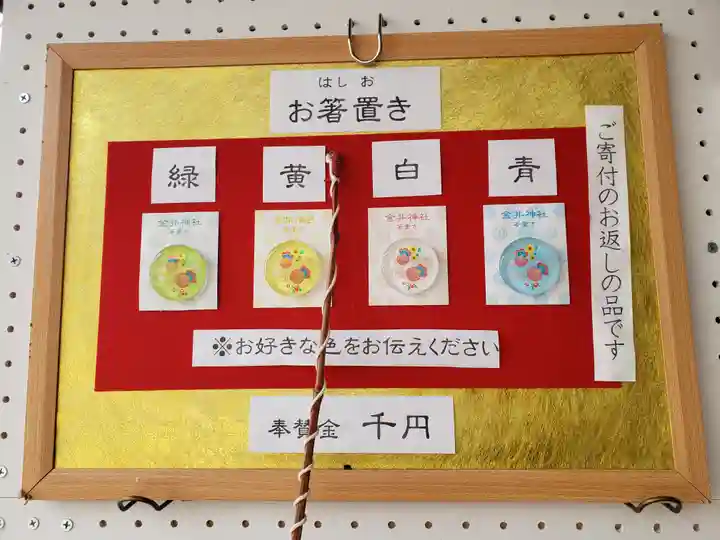 はし お
お箸置き
緑
黄
白
青
金井神社
箸置き
金井神社
箸置き
金井神社
箸置き
※お好きな色をお伝えください
奉賛金 千円
ご寄付のお返しの品です